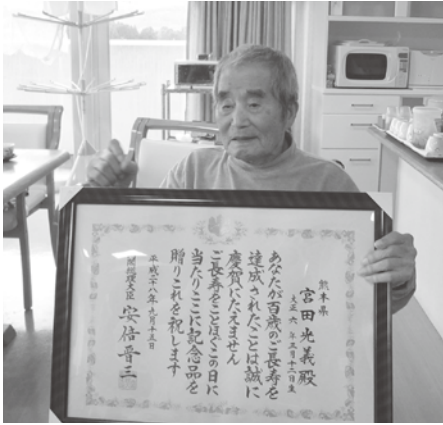 熊本県
宮田光義殿
大正六年三月十二日生
あなたが百歳のご長寿を
達成されたことは誠に
慶賀にたえません
ご長寿をことほぐこの日に
当たりここに記念品を
贈りこれを祝します
平成二十八年九月十五日
内閣総理大臣 安倍晋三